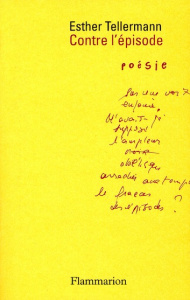 Esther Tellermann
Contre l'épisode
poésie
enfouie
N'avait-je
supposé
l'ampleur
oblique
arrachés aux temps
le fracas
des épisodes ?
Flammarion